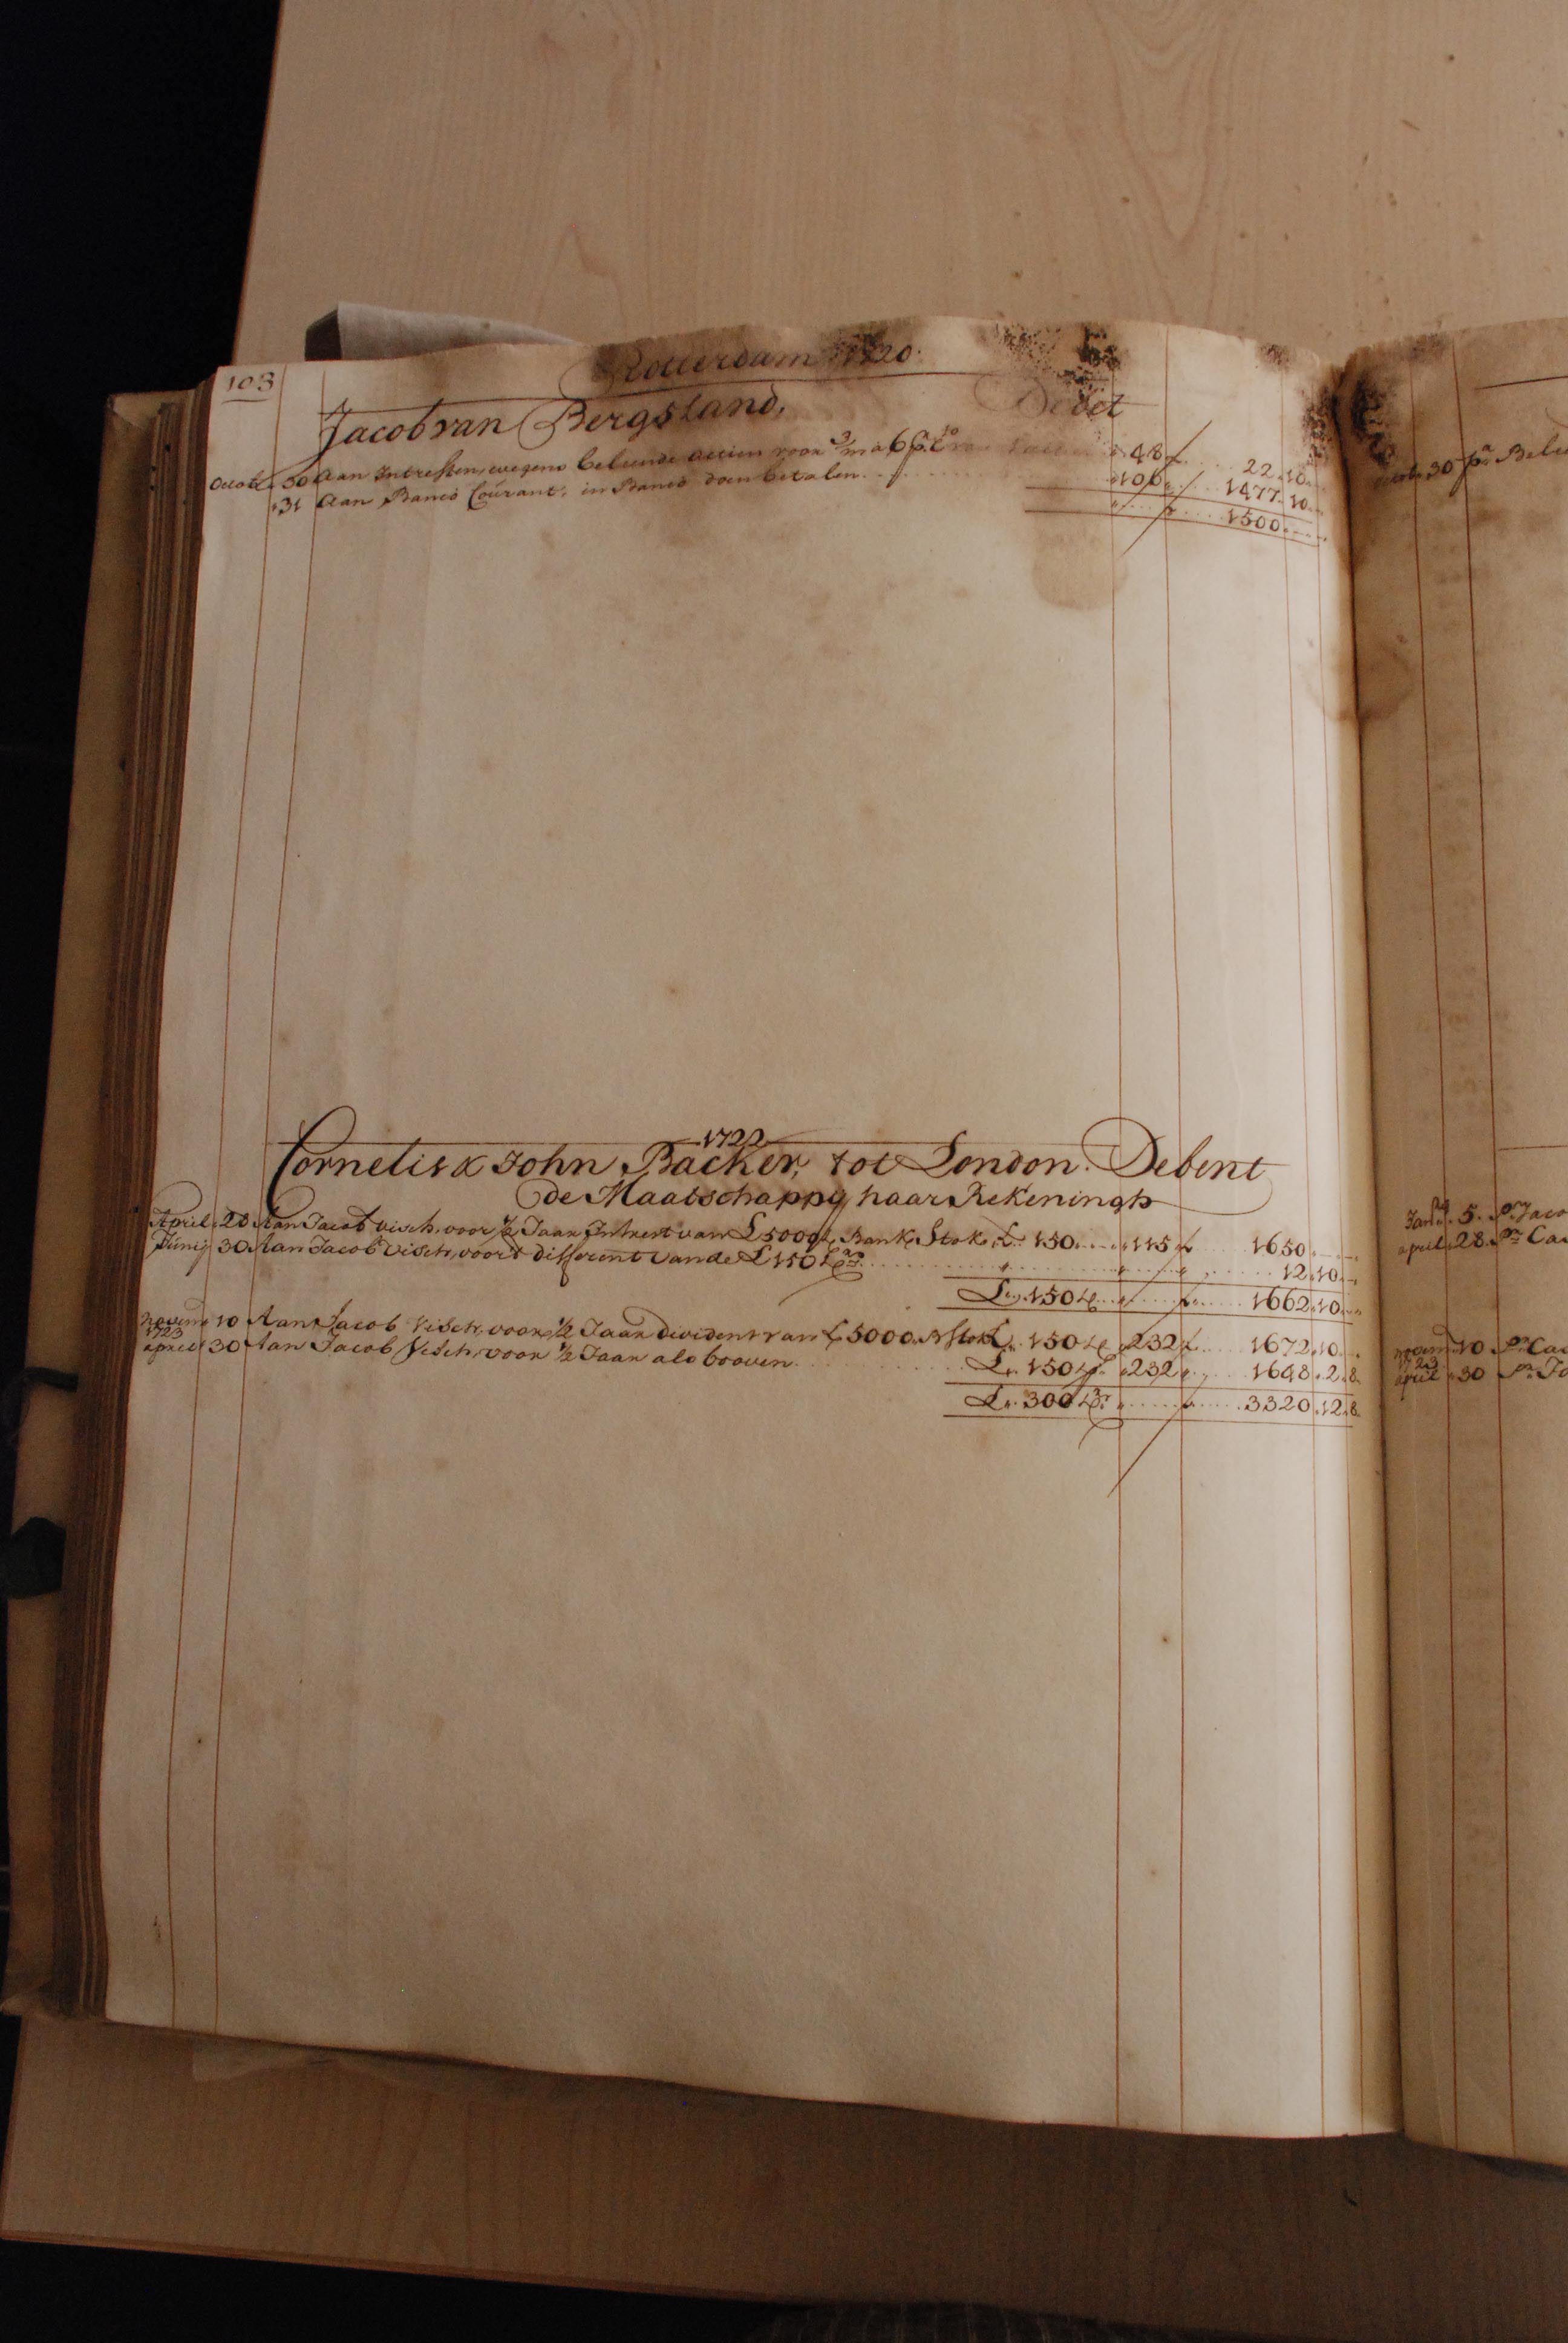 103
Rotterdam 1720.
Jacob van Bergsland, Debet
Octob. 30 Aan Intressen, wegens beleende actien voor 3/m a 6 P. Cto 48 f 22.10
31 Aan Banco Courant, in Banco doen betalen 106 1477.10
1500
1722
Cornelis & John Backer, tot London. Debent
de Maatschappy haar Rekeningh
April 28 Aan Jacob Visch, voor ½ Jaar Intrest van £ 5000 Bank Stok £ 150 115 f 1650
Junij 30 Aan Jacob Visch, voor 't different van de £ 150 12.10
£ 150 1662.10
novem 10 Aan Jacob Visch, voor ½ Jaar divident van £ 5000 B Stok £ 150 232 f 1672.10
1723
april 30 Aan Jacob Visch, voor ½ Jaar als booven £ 150 232 1648.2.8
£ 300 3320.12.8
30 Pr
Jan 5. Pr Jaco
april 28 Pr Ca
novem 10 Pr Ca
1723
april 30 Pr Ja